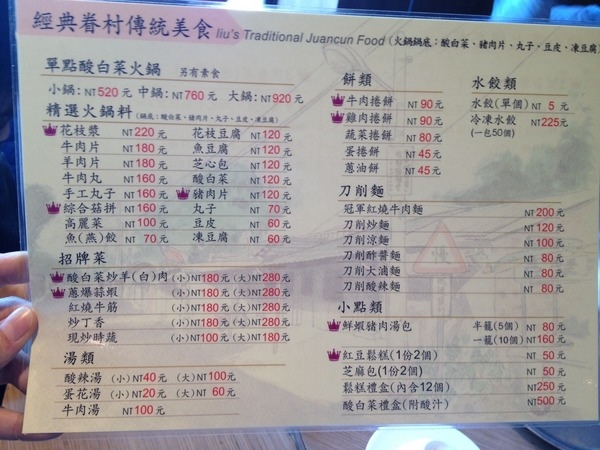 經典眷村傳統美食 liu's Traditional Juancun Food (火鍋鍋底：酸白菜、豬肉片、丸子、豆皮、凍豆腐)
單點酸白菜火鍋 另有素食
小鍋:NT520元 中鍋:NT760元 大鍋:NT920元
精選火鍋料 (鍋底：酸白菜、豬肉片、丸子、豆皮、凍豆腐)
花枝漿 NT220元 花枝豆腐 NT120元
牛肉片 NT180元 魚豆腐 NT120元
羊肉片 NT180元 芝心包 NT120元
牛肉丸 NT160元 酸白菜 NT120元
手工丸子 NT160元 豬肉片 NT120元
綜合菇拼 NT160元 丸子 NT 70元
高麗菜 NT100元 豆皮 NT 60元
魚(燕)餃 NT 70元 凍豆腐 NT 60元
招牌菜
酸白菜炒羊(白)肉 (小)NT180元 (大)NT280元
蔥爆蒜蝦 (小)NT180元 (大)NT280元
紅燒牛筋 (小)NT180元 (大)NT280元
炒丁香 (小)NT180元 (大)NT280元
現炒時蔬 (小)NT100元 (大)NT180元
湯類
酸辣湯 (小)NT40元 (大)NT100元
蛋花湯 (小)NT20元 (大)NT 60元
牛肉湯 NT100元
餅類
牛肉捲餅 NT 90元
雞肉捲餅 NT 90元
蔬菜捲餅 NT 80元
蛋捲餅 NT 45元
蔥油餅 NT 45元
水餃類
水餃(單個) NT 5元
冷凍水餃 NT225元
(一包50個)
刀削麵
冠軍紅燒牛肉麵 NT200元
刀削炒麵 NT120元
刀削涼麵 NT100元
刀削酢醬麵 NT 80元
刀削大滷麵 NT 80元
刀削酸辣麵 NT 80元
小點類
鮮蝦豬肉湯包 半籠(5個) NT 80元
一籠(10個) NT160元
紅豆鬆糕(1份2個) NT 50元
芝麻包(1份2個) NT 50元
鬆糕禮盒(內含12個) NT250元
酸白菜禮盒(附酸汁) NT500元